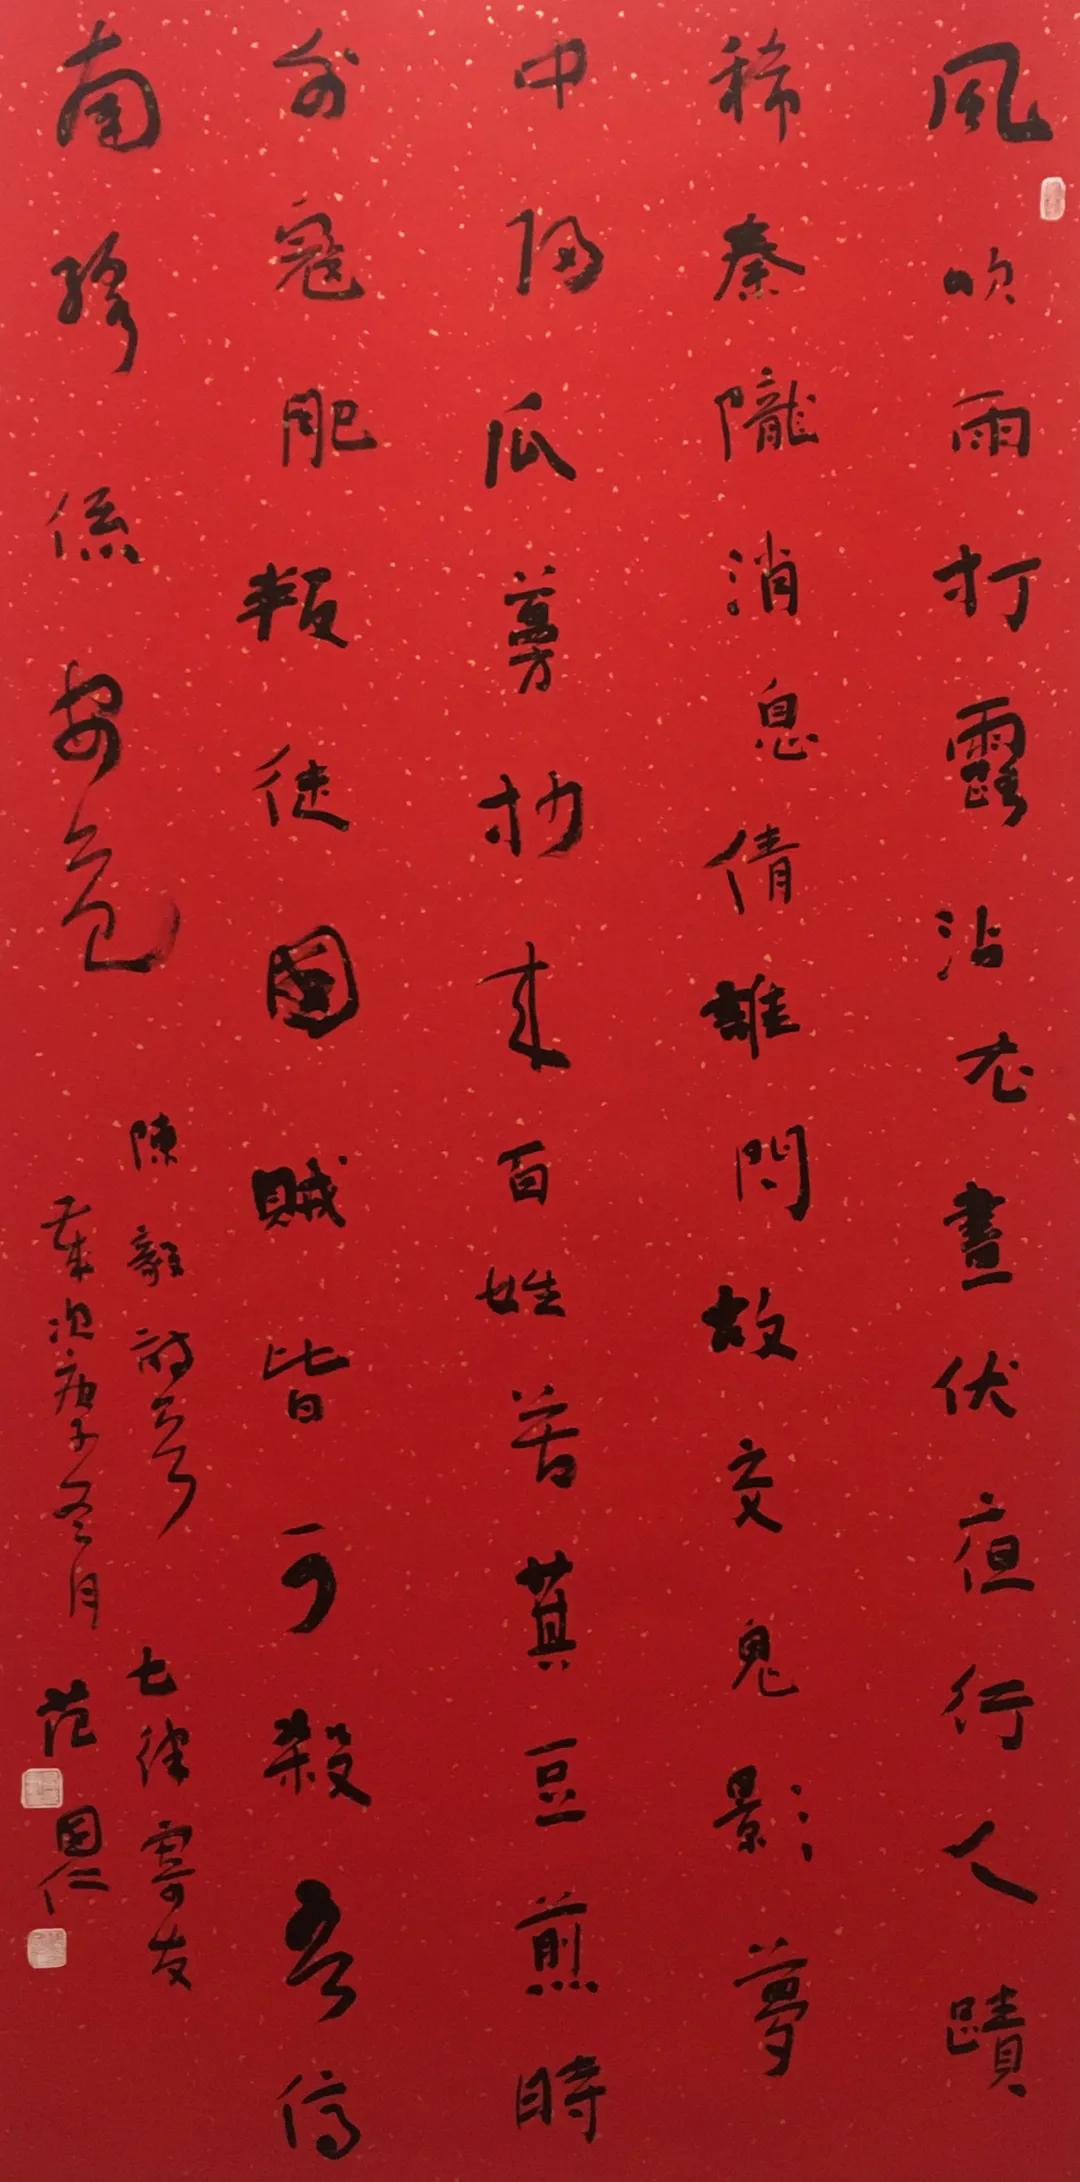 風吹雨打露沾衣晝伏夜行人蹟
稀秦隴消息倩誰問故交鬼影夢
中歸瓜蔓抄來百姓苦萁豆煎時
外寇肥叛徒國賊皆可殺吾儕
南係安危
陳毅詩七律寄友
歲次庚子冬月范